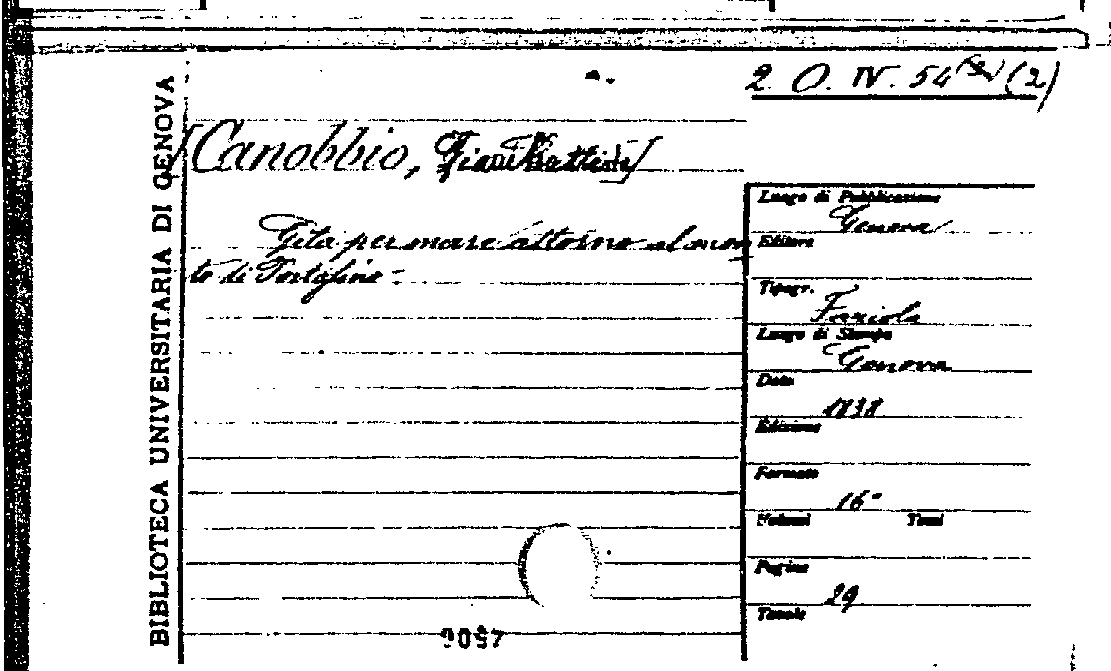 BIBLIOTECA UNIVERSITARIA DI GENOVA
2. O. IV. 54 (2)
[Canobbio, Giambattista]
Gita per mare attorno al mon
te di Portofino -
Luogo di Pubblicazione
Genova
Editore
Tipogr.
Faziola
Luogo di Stampa
Genova
Data
1838
Edizione
Formato
16°
Volumi Tomi
Pagine
29
Tavole